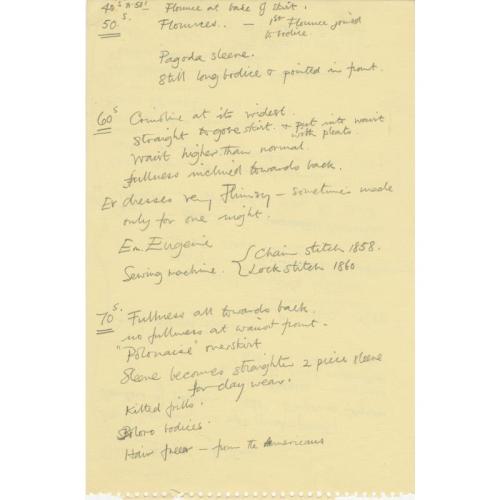 40s & 50s! Flounce at base of skirt.
50s. Flounces. — 1st Flounce joined
to bodice
Pagoda sleeve.
Still long bodice & pointed in front.
60s Crinoline at its widest.
Straight to gore skirt. & put into waist
with pleats.
Waist higher than normal.
fullness inclined towards back.
Ev dresses very flimsy — sometimes made
only for one night.
Em. Eugenie
Sewing machine. { Chain stitch 1858.
Lock stitch 1860
70s. Fullness all towards back.
no fullness at waist front.
"Polonaise" overskirt
Sleeve becomes straighter 2 piece sleeve
for day wear.
Kilted frills.
bodices.
Hair — from the Americans